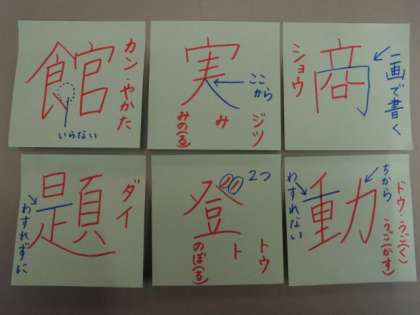 館
カン・やかた
いらない
実
ここから
ジツ
み
みの(る)
商
ショウ
一画で書く
題
ダイ
わすれずに
登
2つ
トウ
ト
のぼ(る)
動
ちから
わすれない
ドウ・うご(く)
うご(かす)